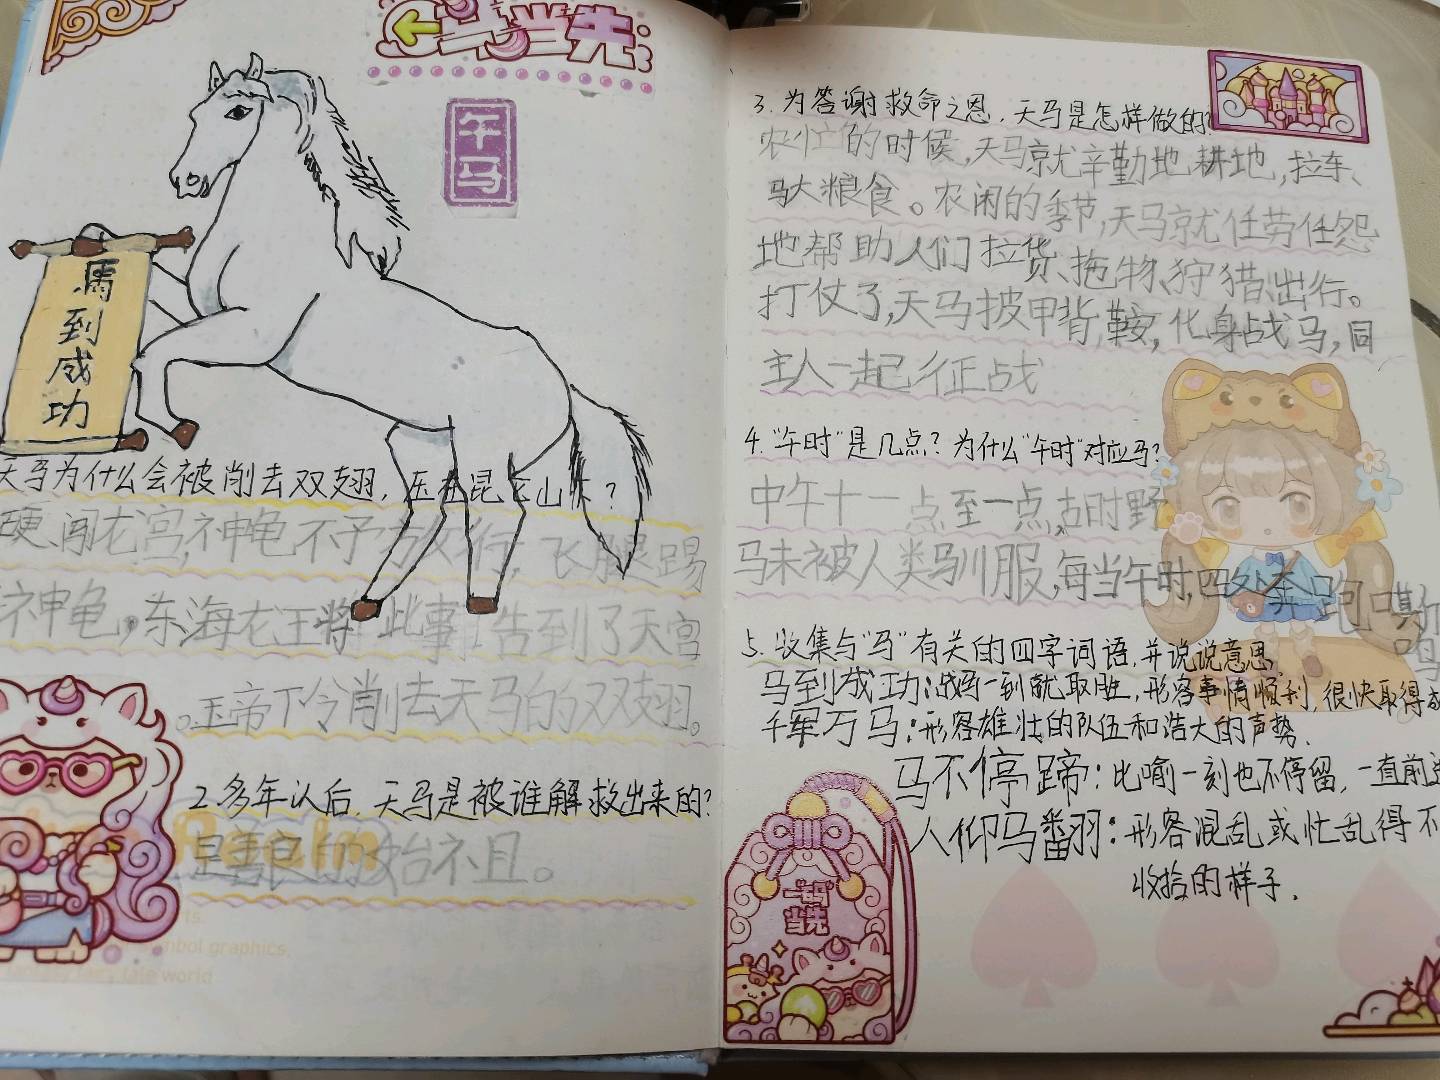 一马当先
午马
馬到成功
天马为什么会被削去双翅，压在昆仑山下？
硬闯龙宫,神龟不予放行,飞腿踢
神龟,东海龙王将此事告到了天宫
。玉帝下令削去天马的双翅。
2.多年以后,天马是被谁解救出来的?
是善良的始祖。
bol graphics,
tale world
3.为答谢救命之恩,天马是怎样做的?
农忙的时候,天马就辛勤地耕地,拉车、
驮粮食。农闲的季节,天马就任劳任怨
地帮助人们拉货、拖物、狩猎、出行。
打仗了,天马披甲背鞍,化身战马,同
主人一起征战
4."午时"是几点?为什么"午时"对应马?
中午十一点至一点,古时野
马未被人类驯服,每当午时,四处奔跑嘶
鸣
5.收集与"马"有关的四字词语,并说说意思.
马到成功:战马一到就取胜,形容事情顺利,很快取得
千军万马:形容雄壮的队伍和浩大的声势.
马不停蹄:比喻一刻也不停留,一直前进
人仰马翻:形容混乱或忙乱得不
收拾的样子.
一马
当先